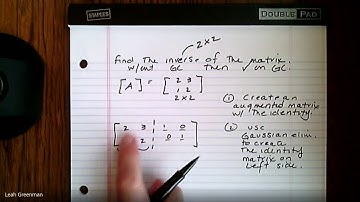 STAPLES
DOUBLE PAD
2x2
find the inverse of the matrix
w/out GC then ✓ on GC.
[A] = [ 2 3
1 2 ]
2x2
① Create an
augmented matrix
w/ the identity.
② use
Gaussian elim.
to create
the identity
matrix on
left side.
[ 2 3 | 1 0
2 | 0 1 ]
Leah Greenman